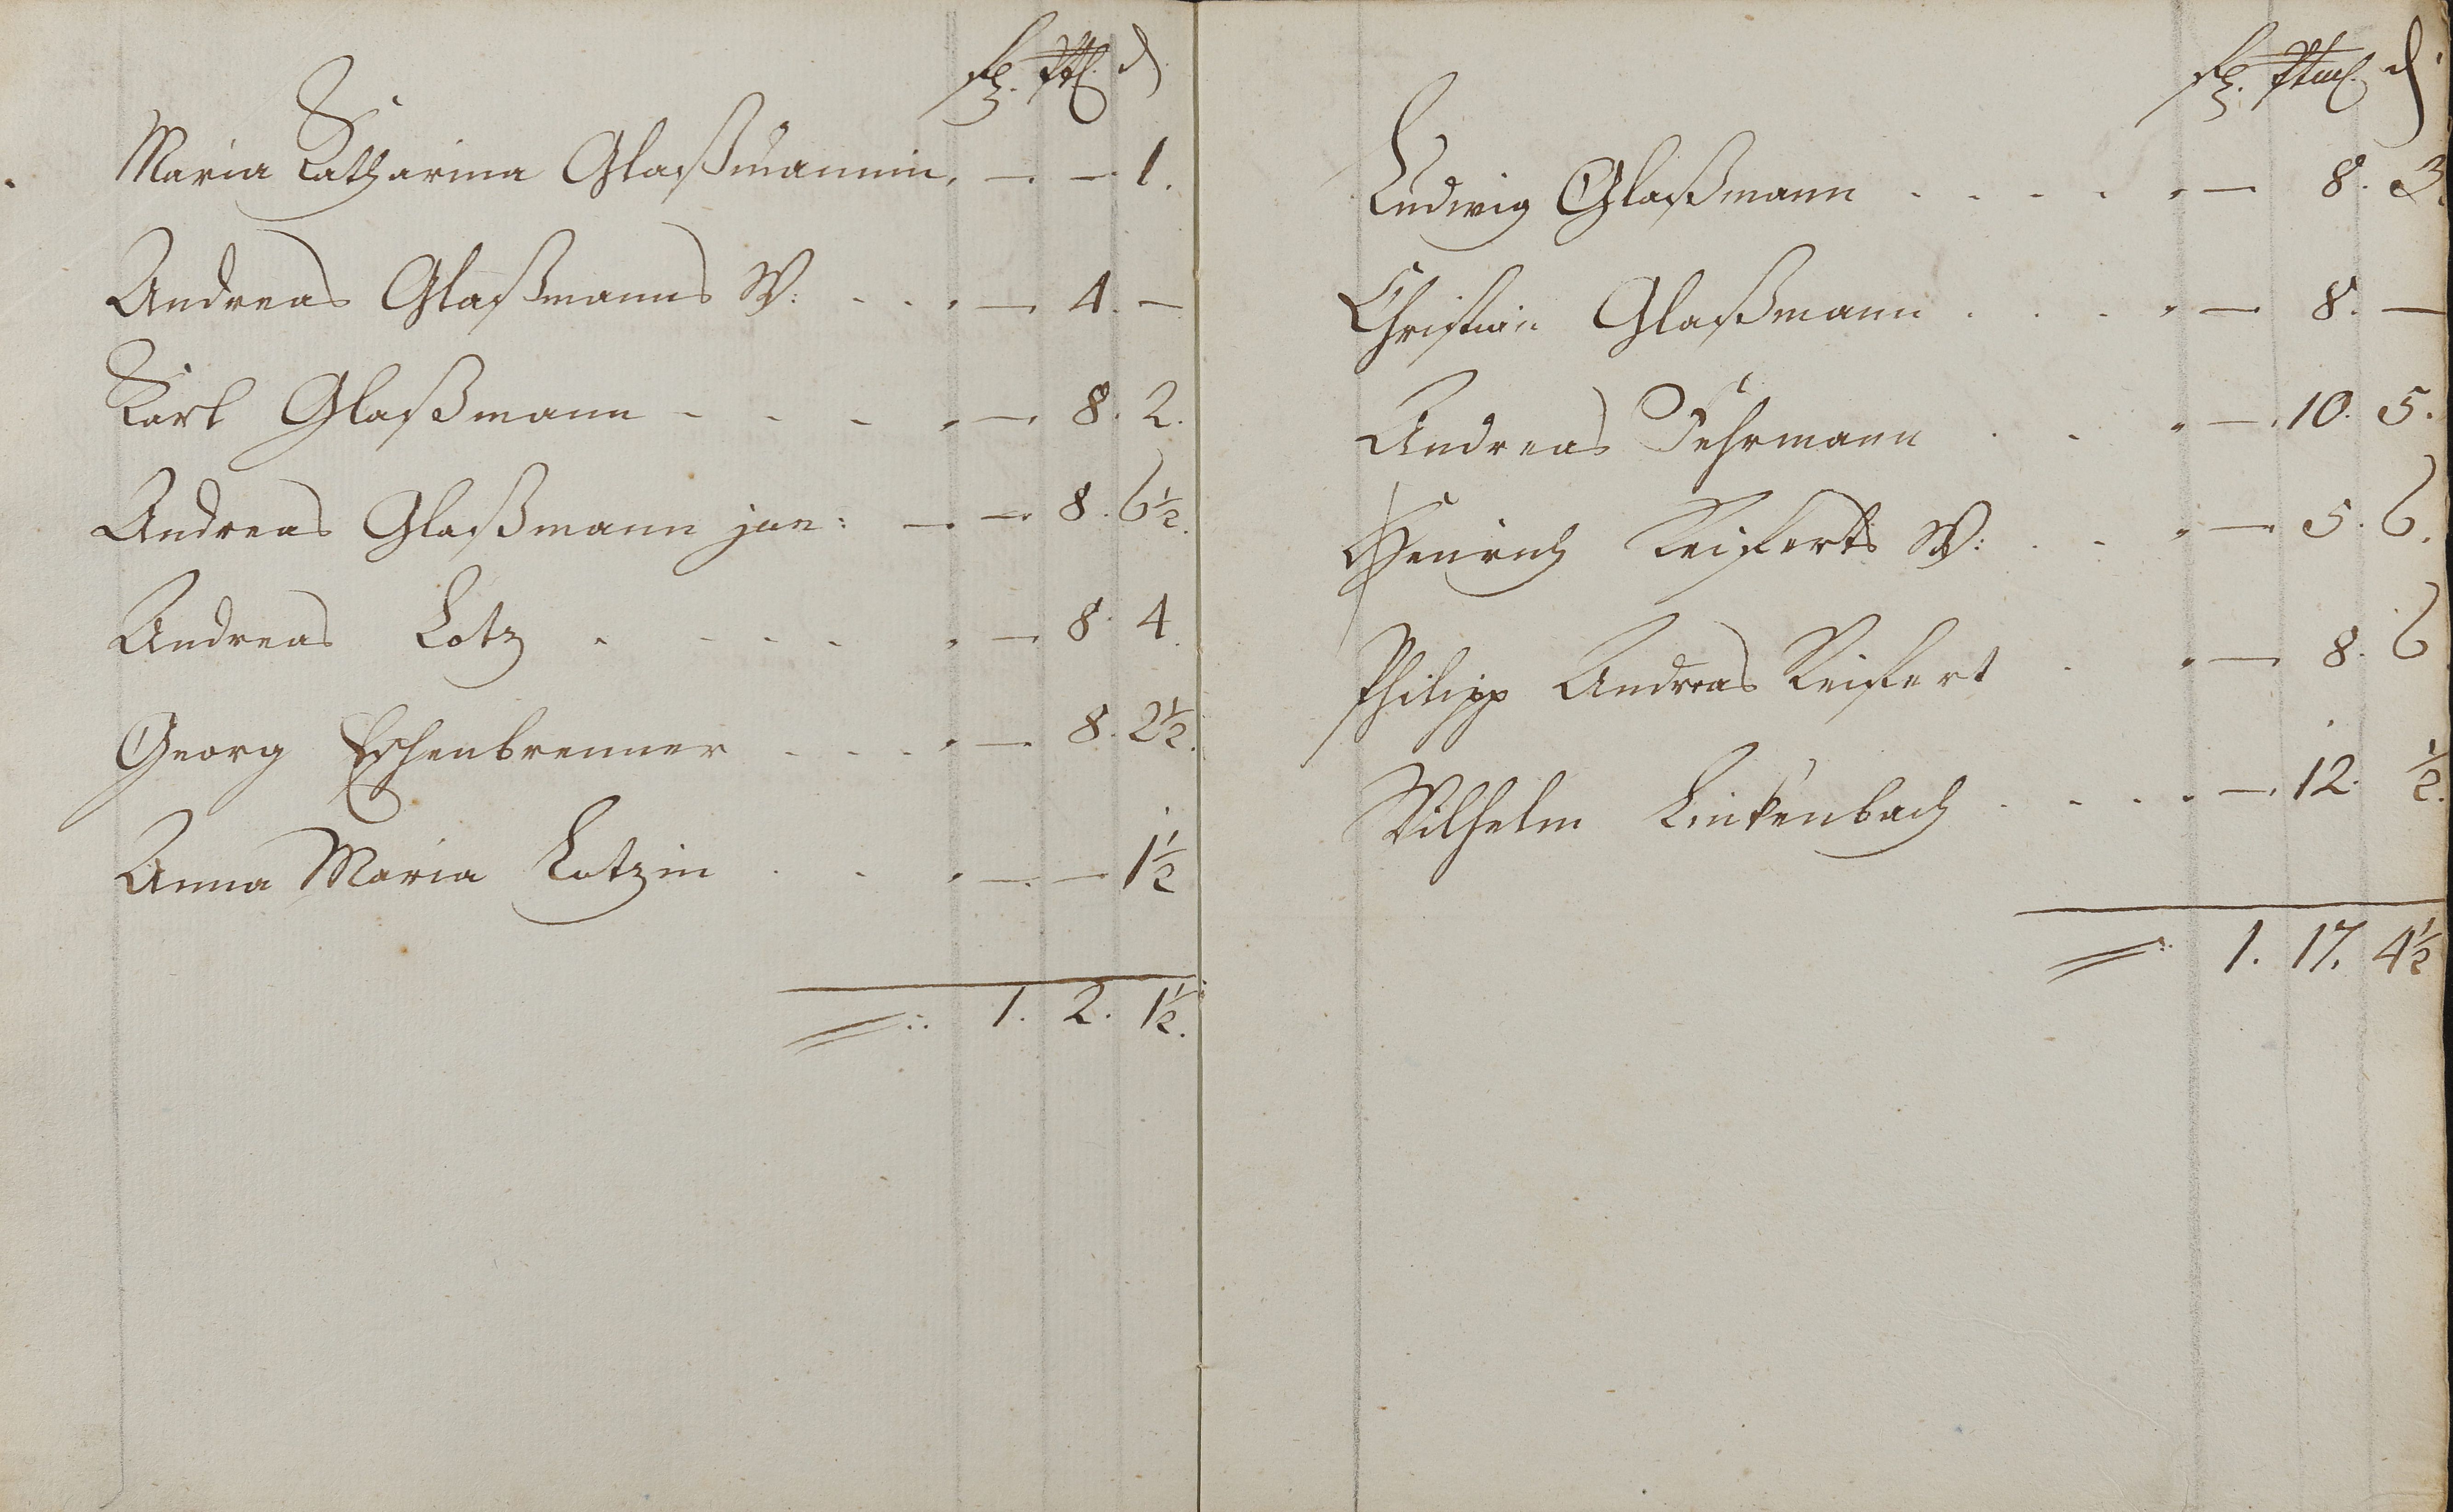 d
Maria Katharina Glaßmannin. — — 1.
Andreas Glaßmanns W: — 4. —
Karl Glaßmann — 8. 2.
Andreas Glaßmann jun: — — 8. 6½.
Andreas Lotz — 8. 4.
Georg Eschenbrenner — 8. 2½.
Anna Maria Lotzin — — 1½
1. 2. 1½.
d
Ludwig Glaßmann — 8. 3.
Christian Glaßmann — 8. —
Andreas Fehrmann — 10. 5.
Henrich Reiferts W: — 5. 6.
Philipp Andreas Reifert — 8. 6
Wilhelm Linkenbach — 12. ½.
1. 17. 4½